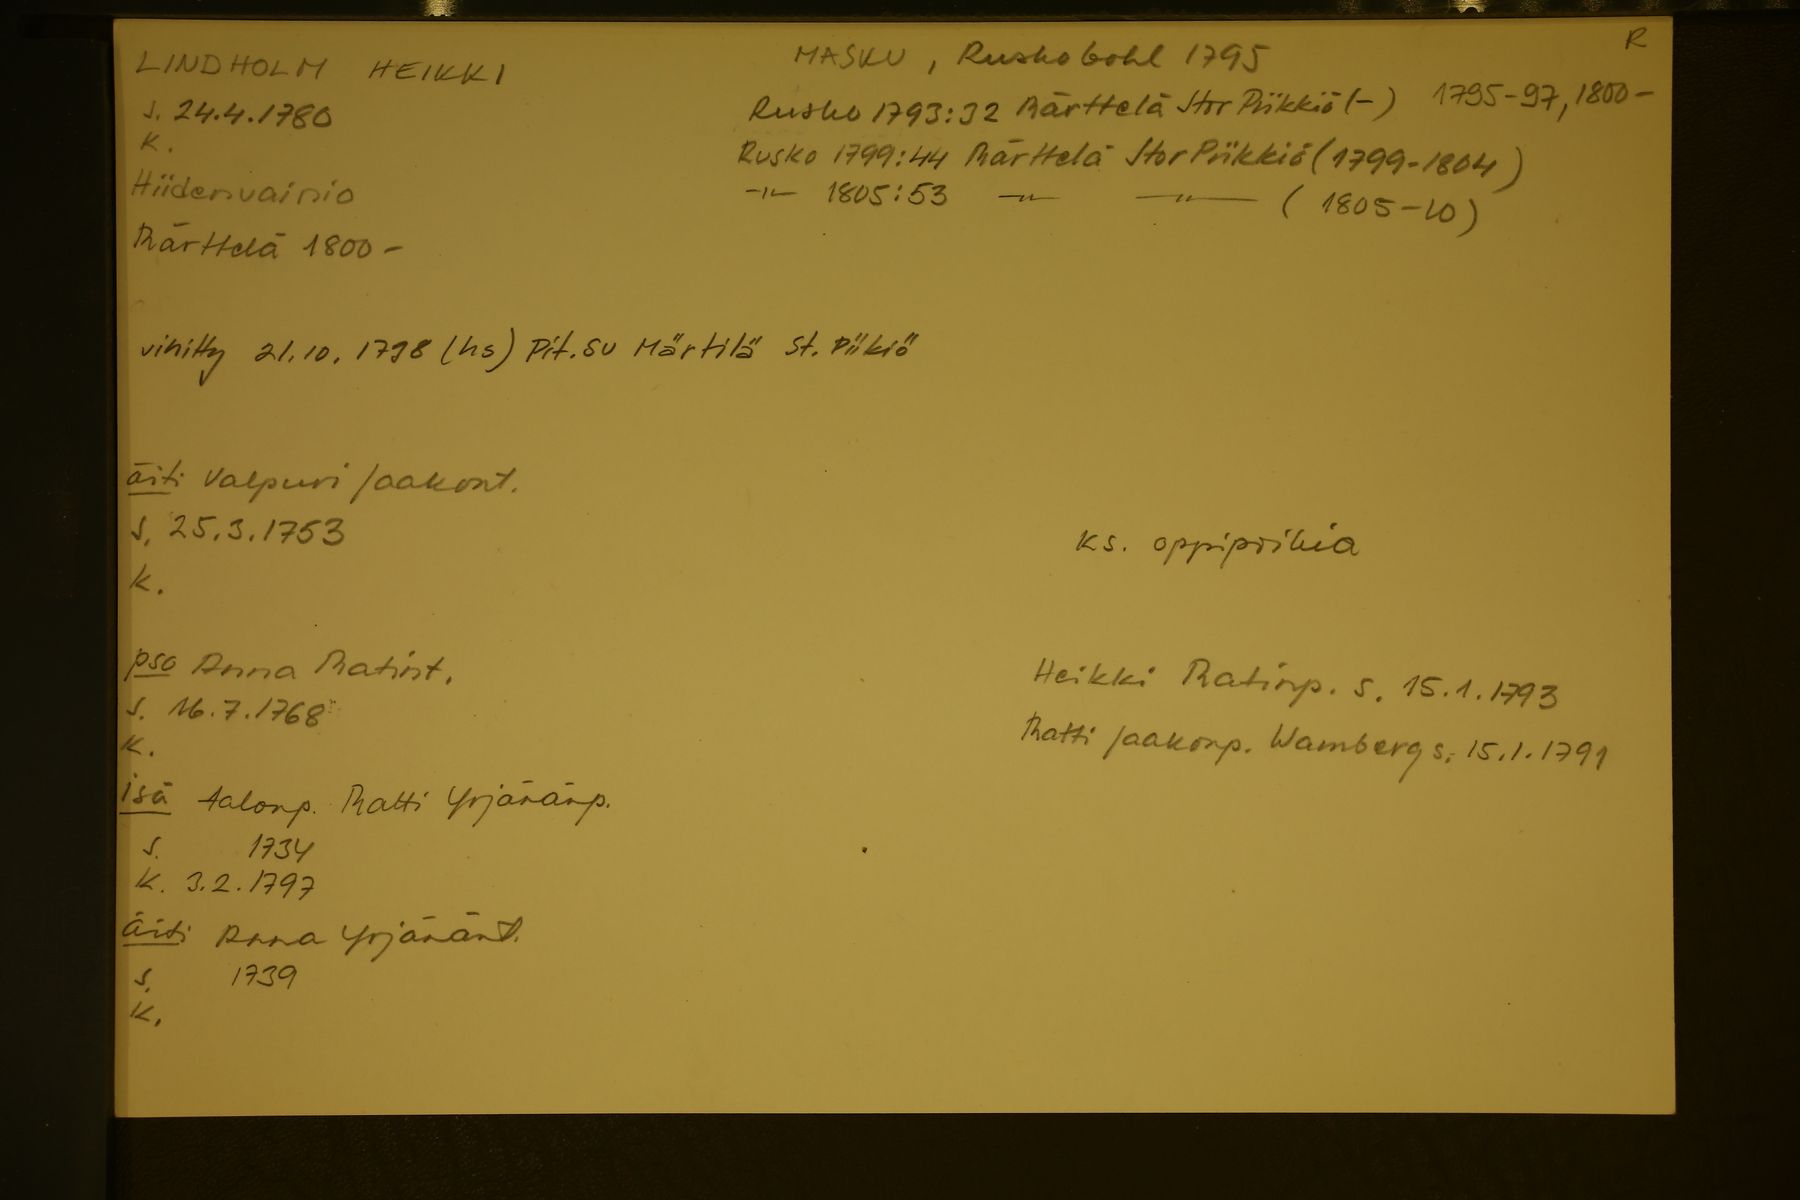 LINDHOLM HEIKKI
s. 24.4.1780
k.
Hiidenvainio
Märttelä 1800-
MASKU, Rusko bohl 1795
R
Rusko 1793:32 Märttelä Stor Piikkiö (-) 1795-97, 1800-
Rusko 1799:44 Märttelä Stor Piikkiö (1799-1804)
-"- 1805:53 -"- -"- (1805-10)
vihitty 21.10.1798 (hs) Pit. su Märtilä St. Piikiö
äiti Valpuri Jaakont.
s. 25.3.1753
k.
ks. oppipoikia
pso Anna Matint.
s. 16.7.1768
k.
Heikki Matinp. s. 15.1.1793
Matti Jaakonp. Wamberg s. 15.1.1791
isä talonp. Matti Yrjänänp.
s. 1734
k. 3.2.1797
äiti Anna Yrjänänt.
s. 1739
k.